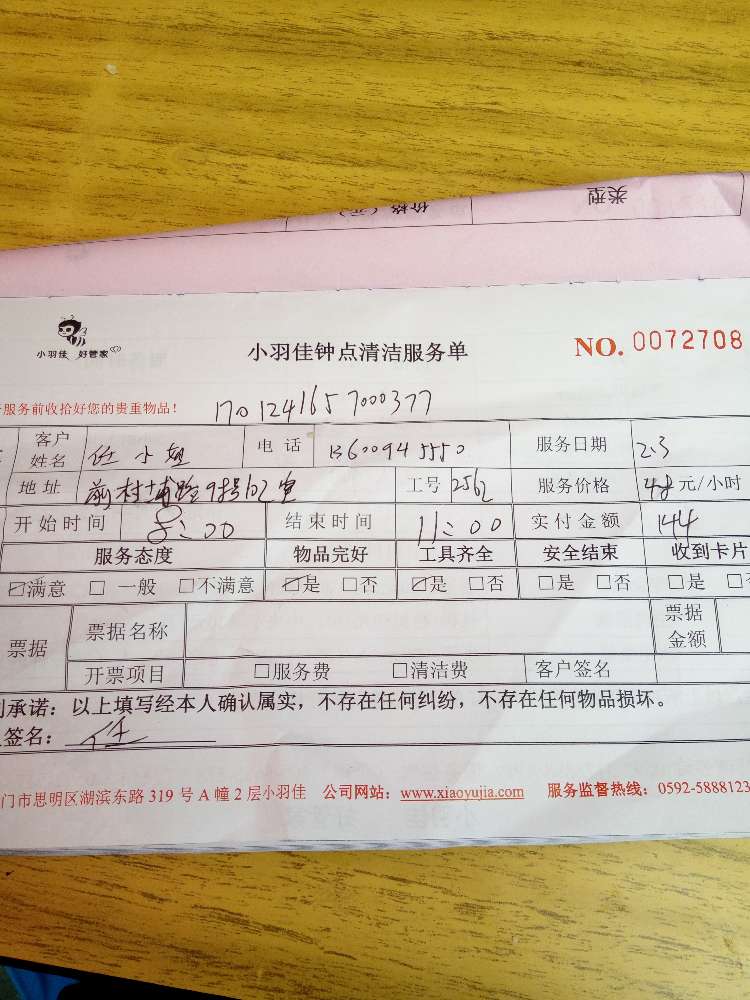 类型
价格（元）
小羽佳 好管家
小羽佳钟点清洁服务单
NO. 0072708
服务前收拾好您的贵重物品！
1701241657000377
客户姓名 任小姐 电话 13600945550 服务日期 2.3
地址 前村埔路9号102室 工号 2562 服务价格 48元/小时
开始时间 8:00 结束时间 11:00 实付金额 144
服务态度 物品完好 工具齐全 安全结束 收到卡片
☑满意 □一般 □不满意 ☑是 □否 ☑是 □否 □是 □否 □是 □
票据 票据名称 票据金额
开票项目 □服务费 □清洁费 客户签名
承诺：以上填写经本人确认属实，不存在任何纠纷，不存在任何物品损坏。
签名：任
门市思明区湖滨东路 319 号 A 幢 2 层小羽佳 公司网站：www.xiaoyujia.com 服务监督热线：0592-5888123